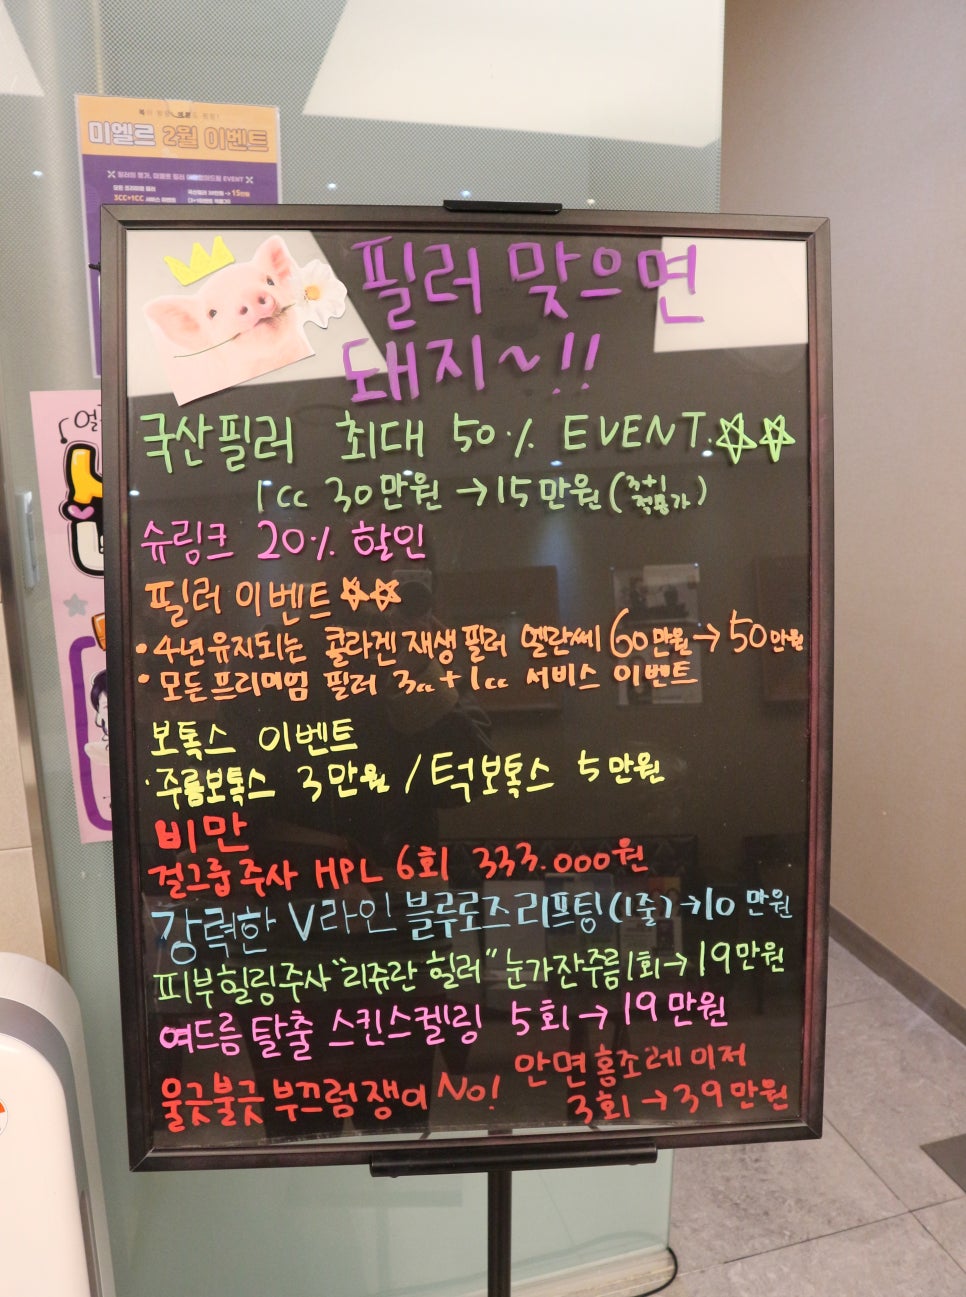 미엘르 2월 이벤트
3CC+1CC 서비스 이벤트
필러 맞으면
돼지~!!
국산필러 최대 50% EVENT.☆☆
1cc 30만원 →15만원(3+1 적용가)
슈링크 20% 할인
필러 이벤트☆☆
•4년유지되는 콜라겐 재생 필러 엘란쎄 60만원→50만원
•모든프리미엄 필러 3cc+1cc 서비스 이벤트
보톡스 이벤트
·주름보톡스 3만원 / 턱보톡스 5만원
비만
걸그룹주사 HPL 6회 333.000원
강력한 V라인 블루로즈리프팅(1줄)→10만원
피부힐링주사"리쥬란 힐러"눈가잔주름1회→19만원
여드름탈출 스킨스켈링 5회→19만원
울긋불긋 부끄럼쟁이 NO! 안면홍조레이저
3회→39만원